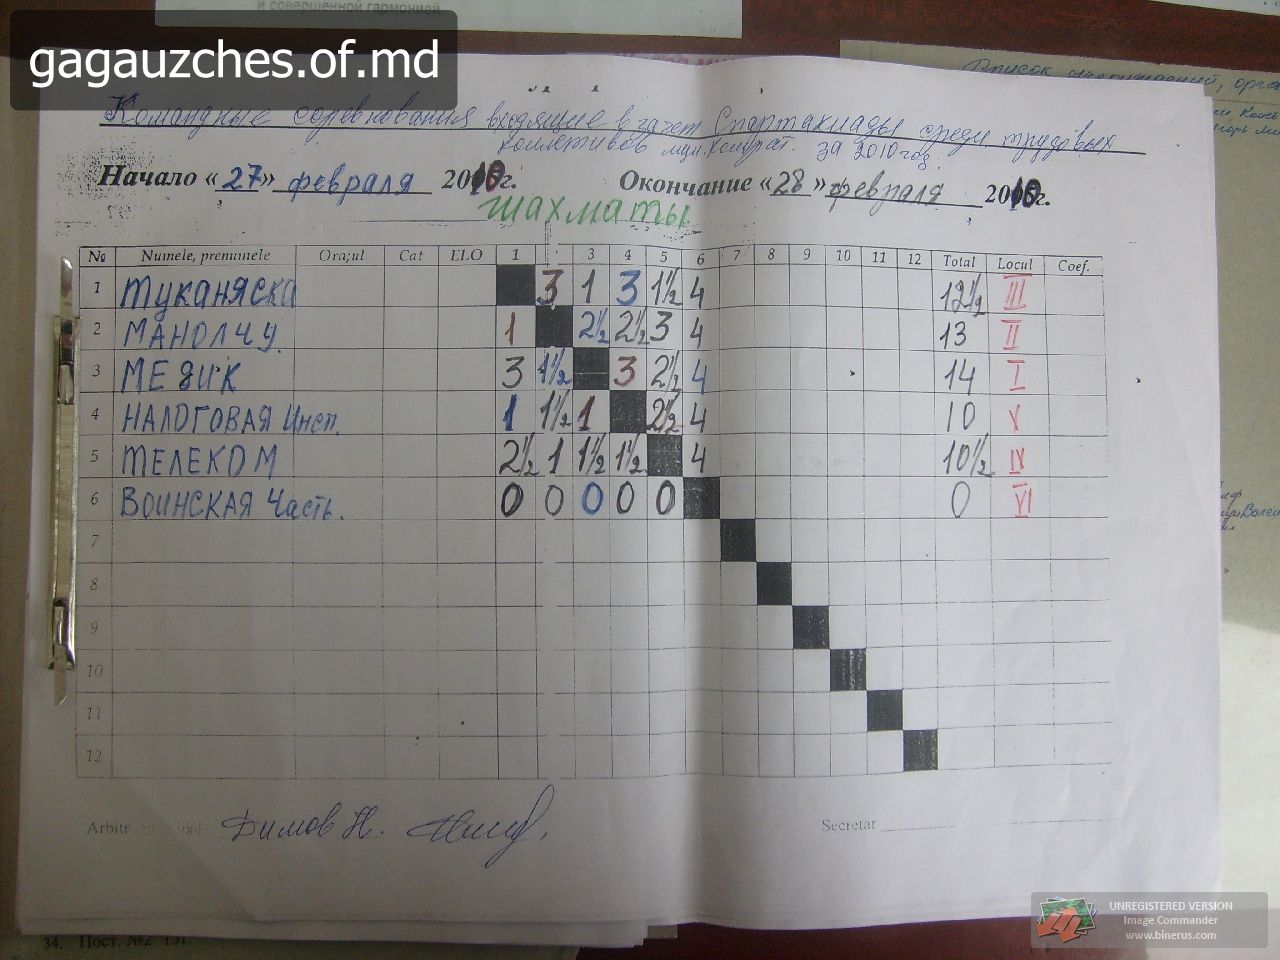 и совершенной гармонией.
gagauzches.of.md
Список
Командные соревнования входящие в зачет Спартакиады среди трудовых
коллективов мун. Комрат. за 2010 год
Начало «27» февраля 2010г. Окончание «28» февраля 2010г.
шахматы
№ Numele, prenumele Oraşul Cat ELO 1 3 4 5 6 7 8 9 10 11 12 Total Locul Coef.
1 Туканяска 3 1 3 1½ 4 12½ III
2 МАНОЛЧУ. 1 2½ 2½ 3 4 13 II
3 МЕДИК 3 1½ 3 2½ 4 14 I
4 НАЛОГОВАЯ Инсп. 1 1½ 1 2½ 4 10 V
5 ТЕЛЕКОМ 2½ 1 1½ 1½ 4 10½ IV
6 ВОИНСКАЯ Часть. 0 0 0 0 0 0 VI
7
8
9
10
11
12
Arbitr Димов Н. Secretar
34. Пост. №2
UNREGISTERED VERSION
Image Commander
www.binerus.com